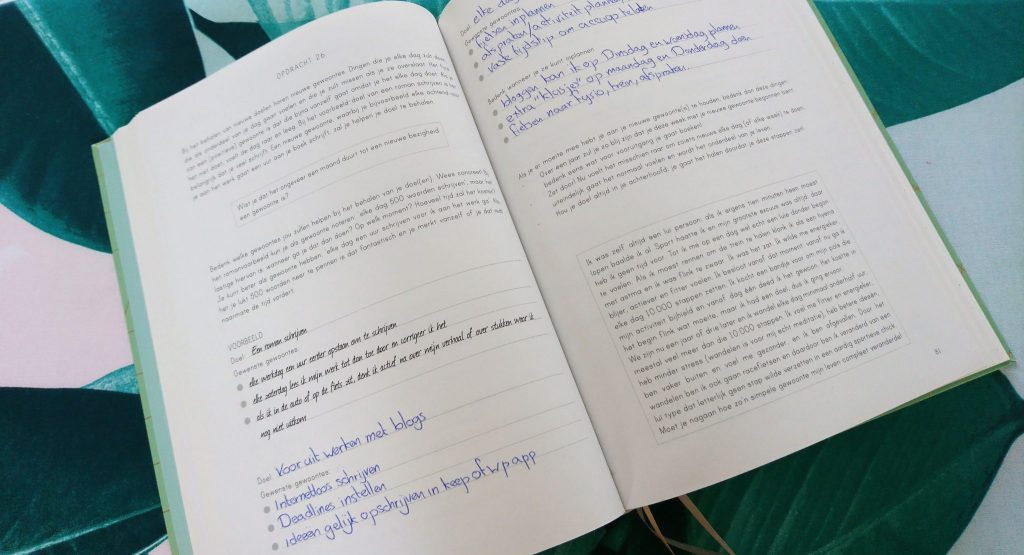 OPDRACHT 26
Bij het behalen van nieuwe doelen horen nieuwe gewoontes. Dingen die je elke dag zult doen,
die als onderdeel van je dag gaat voelen en die je zult missen als je ze overslaat. Het fijne
van een (creatieve) gewoonte is dat die bijna vanzelf gaat omdat je het elke dag doet. Kun je
het niet doen, voelt de dag raar en leeg. Bij het voorbeeld-doel van een roman schrijven is het
belangrijk dat je veel schrijft. Een nieuwe gewoonte, waarbij je bijvoorbeeld elke ochtend voor
je aan het werk gaat een uur aan je boek schrijft, zal je helpen je doel te behalen.
Wist je dat het ongeveer een maand duurt tot een nieuwe bezigheid
een gewoonte is?
Bedenk welke gewoontes jou zullen helpen bij het behalen van je doel(en). Wees concreet! Bij
het romanvoorbeeld kun je als gewoonte noteren 'elke dag 500 woorden schrijven', maar het
lastige hiervan is: wanneer ga je dat dan doen? Op welk moment? Hoeveel tijd zal het kosten?
Je kunt beter als gewoonte hebben 'elke dag een uur schrijven voor ik aan het werk ga'. Als
het je lukt 500 woorden neer te pennen is dat fantastisch en je merkt vanzelf of je dat met
naarmate de tijd vordert.
VOORBEELD
Doel: Een roman schrijven
Gewenste gewoontes:
elke werkdag een uur eerder opstaan om te schrijven
elke zaterdag lees ik mijn werk tot dan toe door en corrigeer ik het
als ik in de auto of op de fiets zit, denk ik actief na over mijn verhaal of over stukken waar ik
nog niet uitkom
Doel: Vooruit werken met blogs
Gewenste gewoontes:
Internetloos schrijven
Deadlines instellen
ideeën gelijk opschrijven in keep of wp app
Doel: elke dag
Gewenste gewoontes:
fietsen inplannen
afspraken/activiteit plannen
vaste tijdstip om accu op te laden
Bedenk wanneer je ze kunt inplannen:
bloggen kan ik op Dinsdag en woensdag plannen
extra "klusje" op maandag en Donderdag doen
fietsen naar fysio, trein, afspraken..
Als je er moeite mee hebt je aan je nieuwe gewoonte(n) te houden, bedenk dan deze dingen:
Over een jaar zul je zo blij zijn dat je deze week met je nieuwe gewoonte begonnen bent
Bedenk eens wat voor vooruitgang je gaat boeken!
Zet door! Nu voelt het misschien raar om zoiets nieuws elke dag (of elke week) te doen,
uiteindelijk gaat het normaal voelen en wordt het onderdeel van je leven.
Hou je doel altijd in je achterhoofd; je gaat het halen doordat je deze stappen zet!
Ik was zelf altijd een lui persoon: als ik ergens tien minuten heen moest
lopen baalde ik al. Sport haatte ik en mijn grootste excuus was altijd: daar
heb ik geen tijd voor. Tot ik me op een dag wel echt een luie donder begon
te voelen. Als ik moest rennen om de trein te halen klonk ik als een hyena
met astma en ik was flink te zwaar. Ik was het zat. Ik wilde me energieker,
blijer, actiever en fitter voelen. Ik besloot vanaf dat moment: vanaf nu ga ik
elke dag 10.000 stappen zetten. Ik kocht een bandje voor om mijn pols die
mijn activiteit bijhield en vanaf dag één deed ik het gewoon. Het kostte in
het begin flink wat moeite, maar ik had een doel, dus ik ging ervoor.
We zijn nu een jaar of drie later en ik wandel elke dag minimaal anderhalf uur,
meestal veel meer dan die 10.000 stappen. Ik voel me fitter en energieker,
heb minder stress (wandelen is voor mij echt meditatie), heb betere ideeën,
ben vaker buiten en voel me gezonder, en ik ben afgevallen. Door het
wandelen ben ik ook gaan racefietsen en daardoor ben ik veranderd van een
lui type dat letterlijk geen stap wilde verzetten in een aardig sportieve chick.
Moet je nagaan hoe zo'n simpele gewoonte mijn leven compleet veranderde!
81